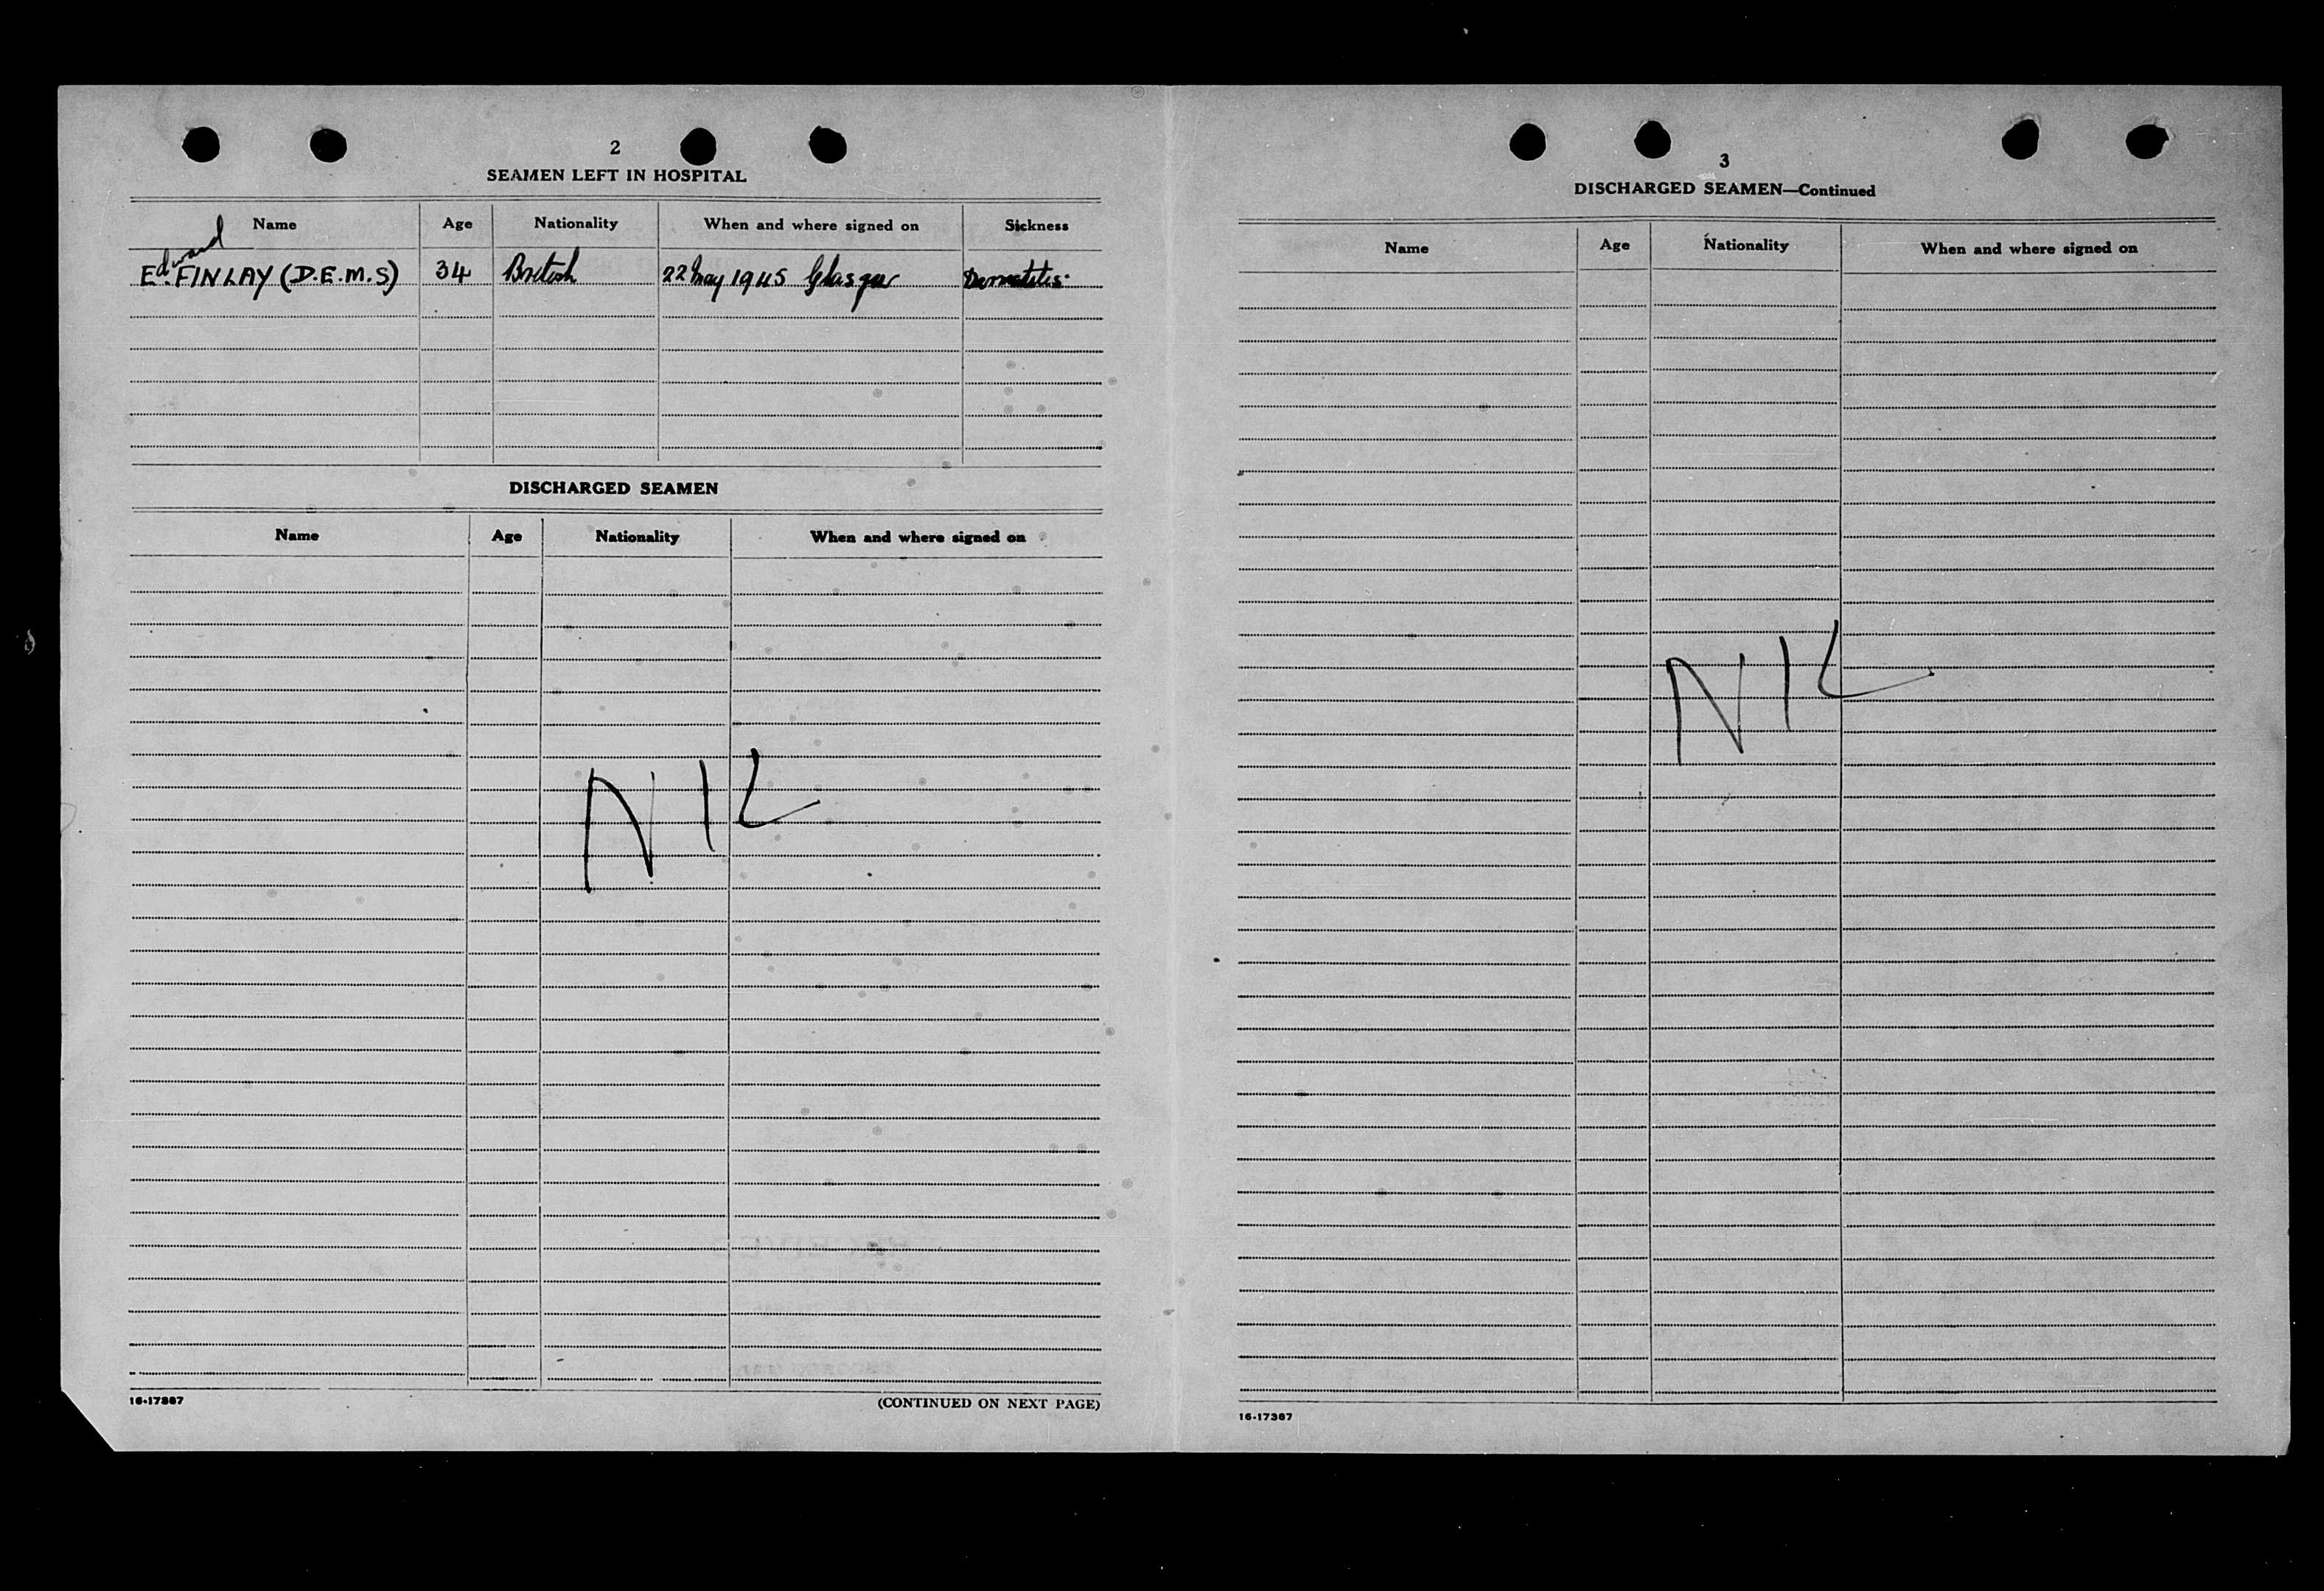 2
SEAMEN LEFT IN HOSPITAL
Name Age Nationality When and where signed on Sickness
Edward
E. FINLAY (D.E.M.S) 34 British 22 May 1945 Glasgow Dermatitis
DISCHARGED SEAMEN
Name Age Nationality When and where signed on
NIL
16-17387
(CONTINUED ON NEXT PAGE)
3
DISCHARGED SEAMEN—Continued
Name Age Nationality When and where signed on
NIL
16-17387